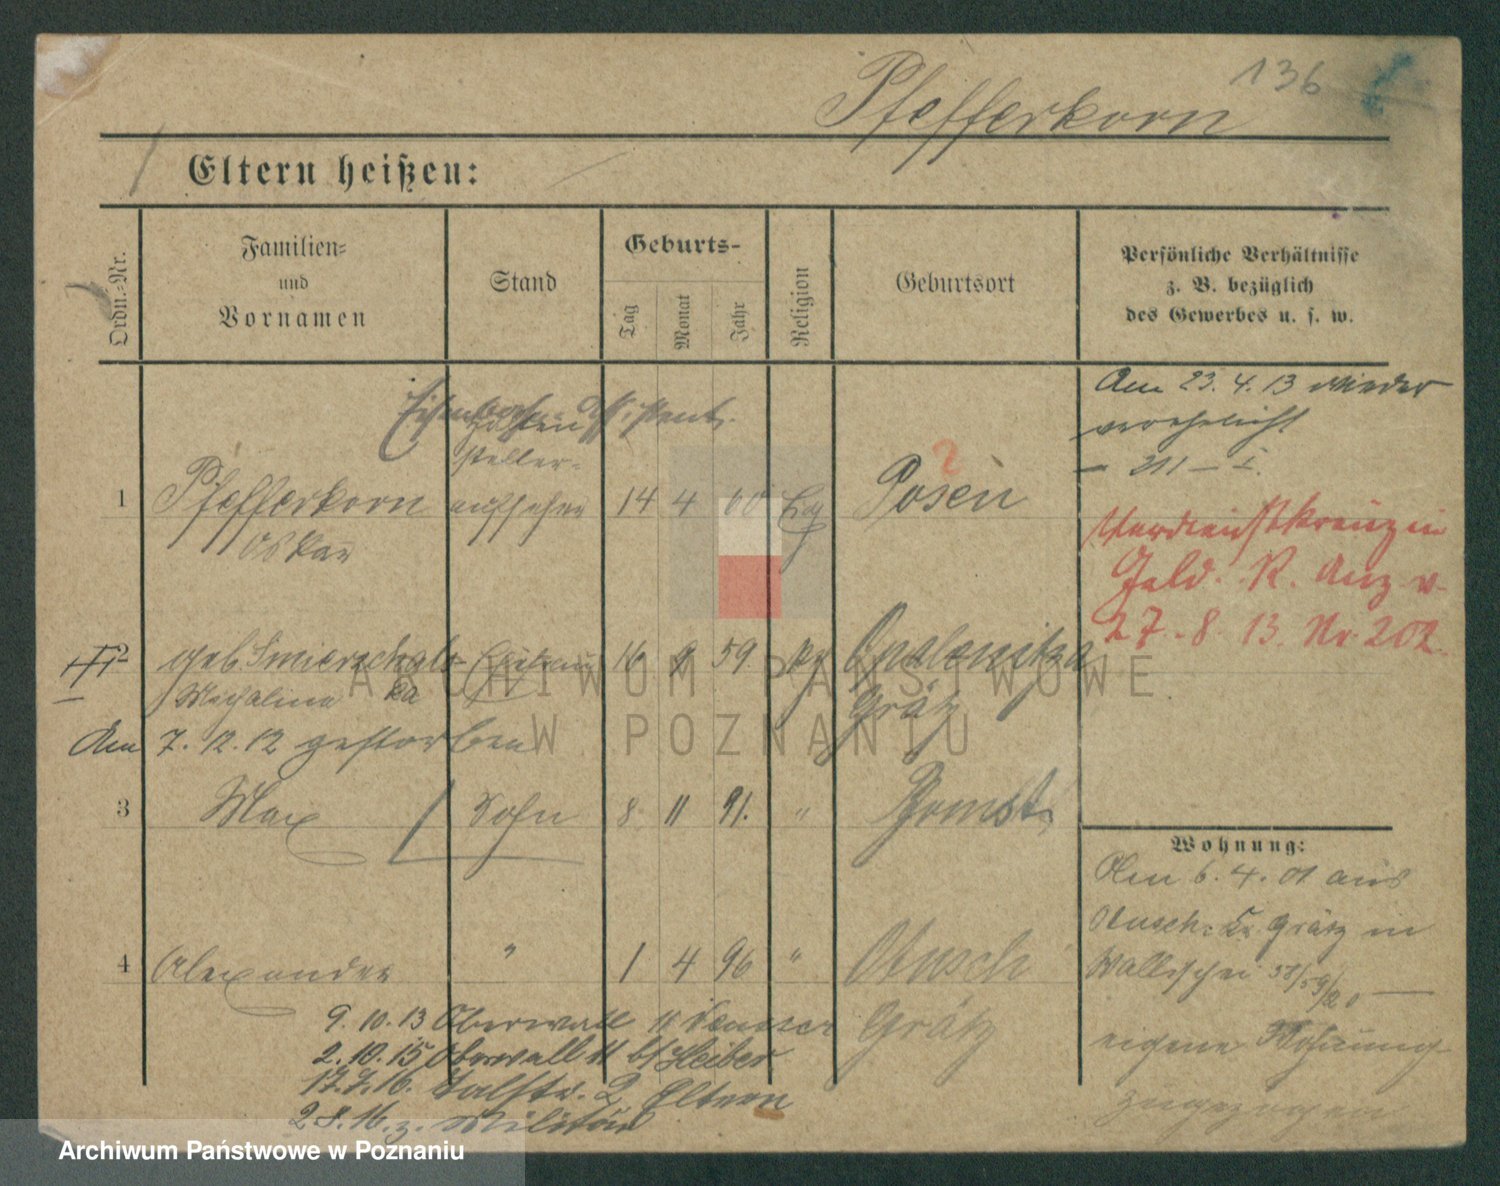 136
Pfefferkorn
Eltern heißen:
Ordn.-Nr.
Familien-
und
Vornamen
Stand
Geburts-
Tag
Monat
Jahr
Religion
Geburtsort
Persönliche Verhältnisse
z. B. bezüglich
des Gewerbes u. s. w.
Am 23. 4. 13 wieder
verehelicht
Eisenbahn Assistent.
steller-
1 Pfefferkorn aufseher 14 4 60 Eg Posen
Oskar
Verdienstkreuz in
Gold. R. Anz v.
27. 8. 13. Nr. 202.
2 geb. Smierschals- Ehefrau 16 9 59. Opalenitza
ka Grätz
Am 7. 12. 12 gestorben
3 Max Sohn 8 11 91. " Bomst
Wohnung:
Am 6. 4. 01 aus
Otusch Kr. Grätz in
Wallischei 58/59/20
eigene Wohnung
zugezogen
4 Alexander " 1 4 96 " Otusch
Grätz
9. 10. 13 Oberwall 11
2. 10. 15 Oberwall 11 b/
Eltern
2 8. 16. z. Militär
ARCHIWUM PAŃSTWOWE
W POZNANIU
Archiwum Państwowe w Poznaniu